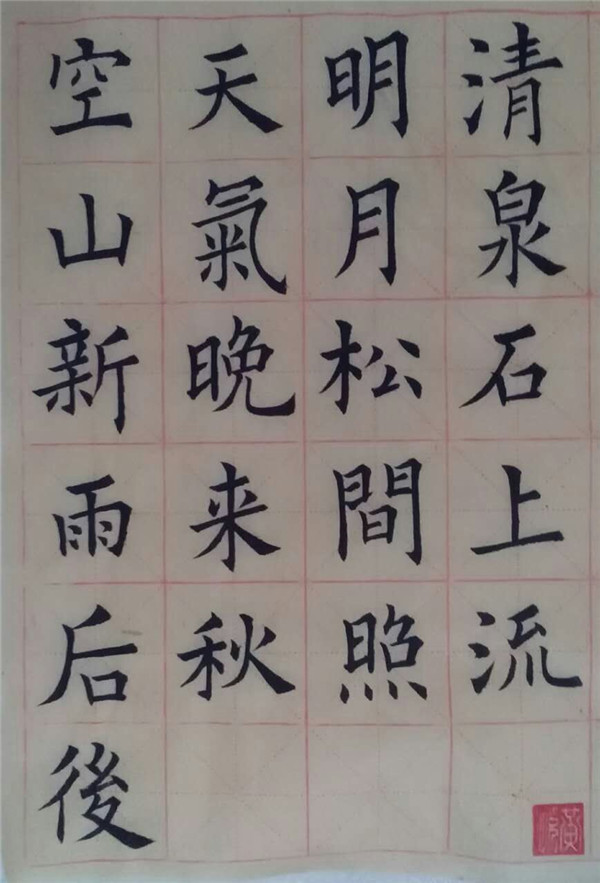 空山新雨后後
天氣晚来秋
明月松間照
清泉石上流